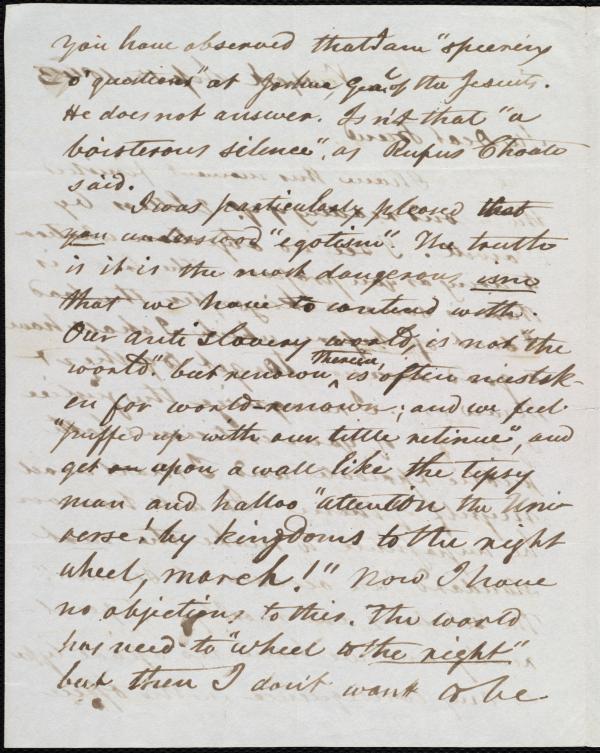 you have observed that I am "speering
o' questions" at Joshua, Gen'l of the Jesuits.
He does not answer. Isn't that "a
boisterous silence", as Rufus Choate
said.
I was particularly pleased that
you understood "egotism". The truth
is it is the most dangerous ism
that we have to contend with.
Our anti slavery world, is not "the
world," but renown therein, is often mistak-
en for world-renown; and we feel
"puffed up with our little retinue", and
get on upon a wall like the tipsy
man and halloo "attention the Uni-
verse! by kingdoms to the right
wheel, march!" Now I have
no objections to this. The world
has need to "wheel to the right"
but then I don't want to be